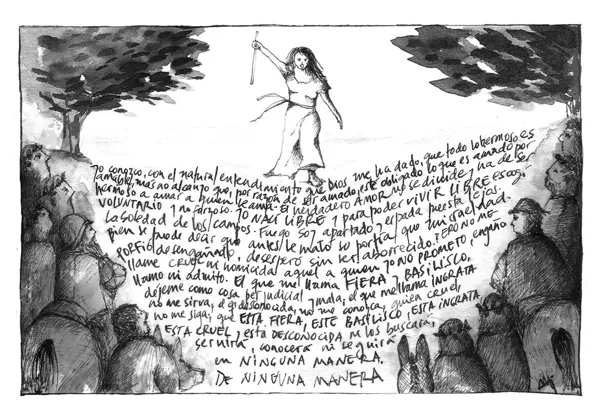 Yo conozco, con el natural entendimiento que Dios me ha dado, que todo lo hermoso es
amable; mas no alcanzo que, por razón de ser amado, esté obligado lo que es amado por
hermoso a amar a quien le ama. El verdadero AMOR no se divide, y ha de ser
VOLUNTARIO y no forzoso. YO NACÍ LIBRE y para poder VIVIR LIBRE escogí
la soledad de los campos. Fuego soy apartado y espada puesta lejos.
Bien se puede decir que antes le mató su porfía que mi crueldad.
PORFIÓ desengañado, desesperó sin ser aborrecido. ¡PERO NO ME
llame CRUEL ni homicida aquel a quien YO NO PROMETO, engaño,
llamo ni admito. El que me llama FIERA y BASILISCO,
déjeme como cosa perjudicial y mala; el que me llama INGRATA
no me sirva, el q desconocida, no me conozca, quien cruel,
no me siga; que ESTA FIERA, ESTE BASILISCO, ESTA INGRATA
ESTA CRUEL y esta DESCONOCIDA ni los buscará,
servirá, conocerá ni seguirá
en NINGUNA MANERA.
DE NINGUNA MANERA